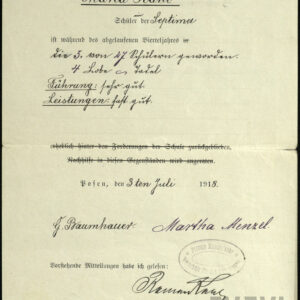 Schüler der Septima
ist während des abgelaufenen Vierteljahres
die 3. von 47 Schülern geworden.
4 Lobe Tadel
Führung: sehr gut.
Leistungen: fast gut.
erheblich hinter den Forderungen der Schule zurückgeblieben.
Nachhilfe in diesen Gegenständen wird angeraten.
Posen, den 3ten Juli 1918.
G. Baumhauer Martha Menzel.
Vorstehende Mitteilungen habe ich gelesen: